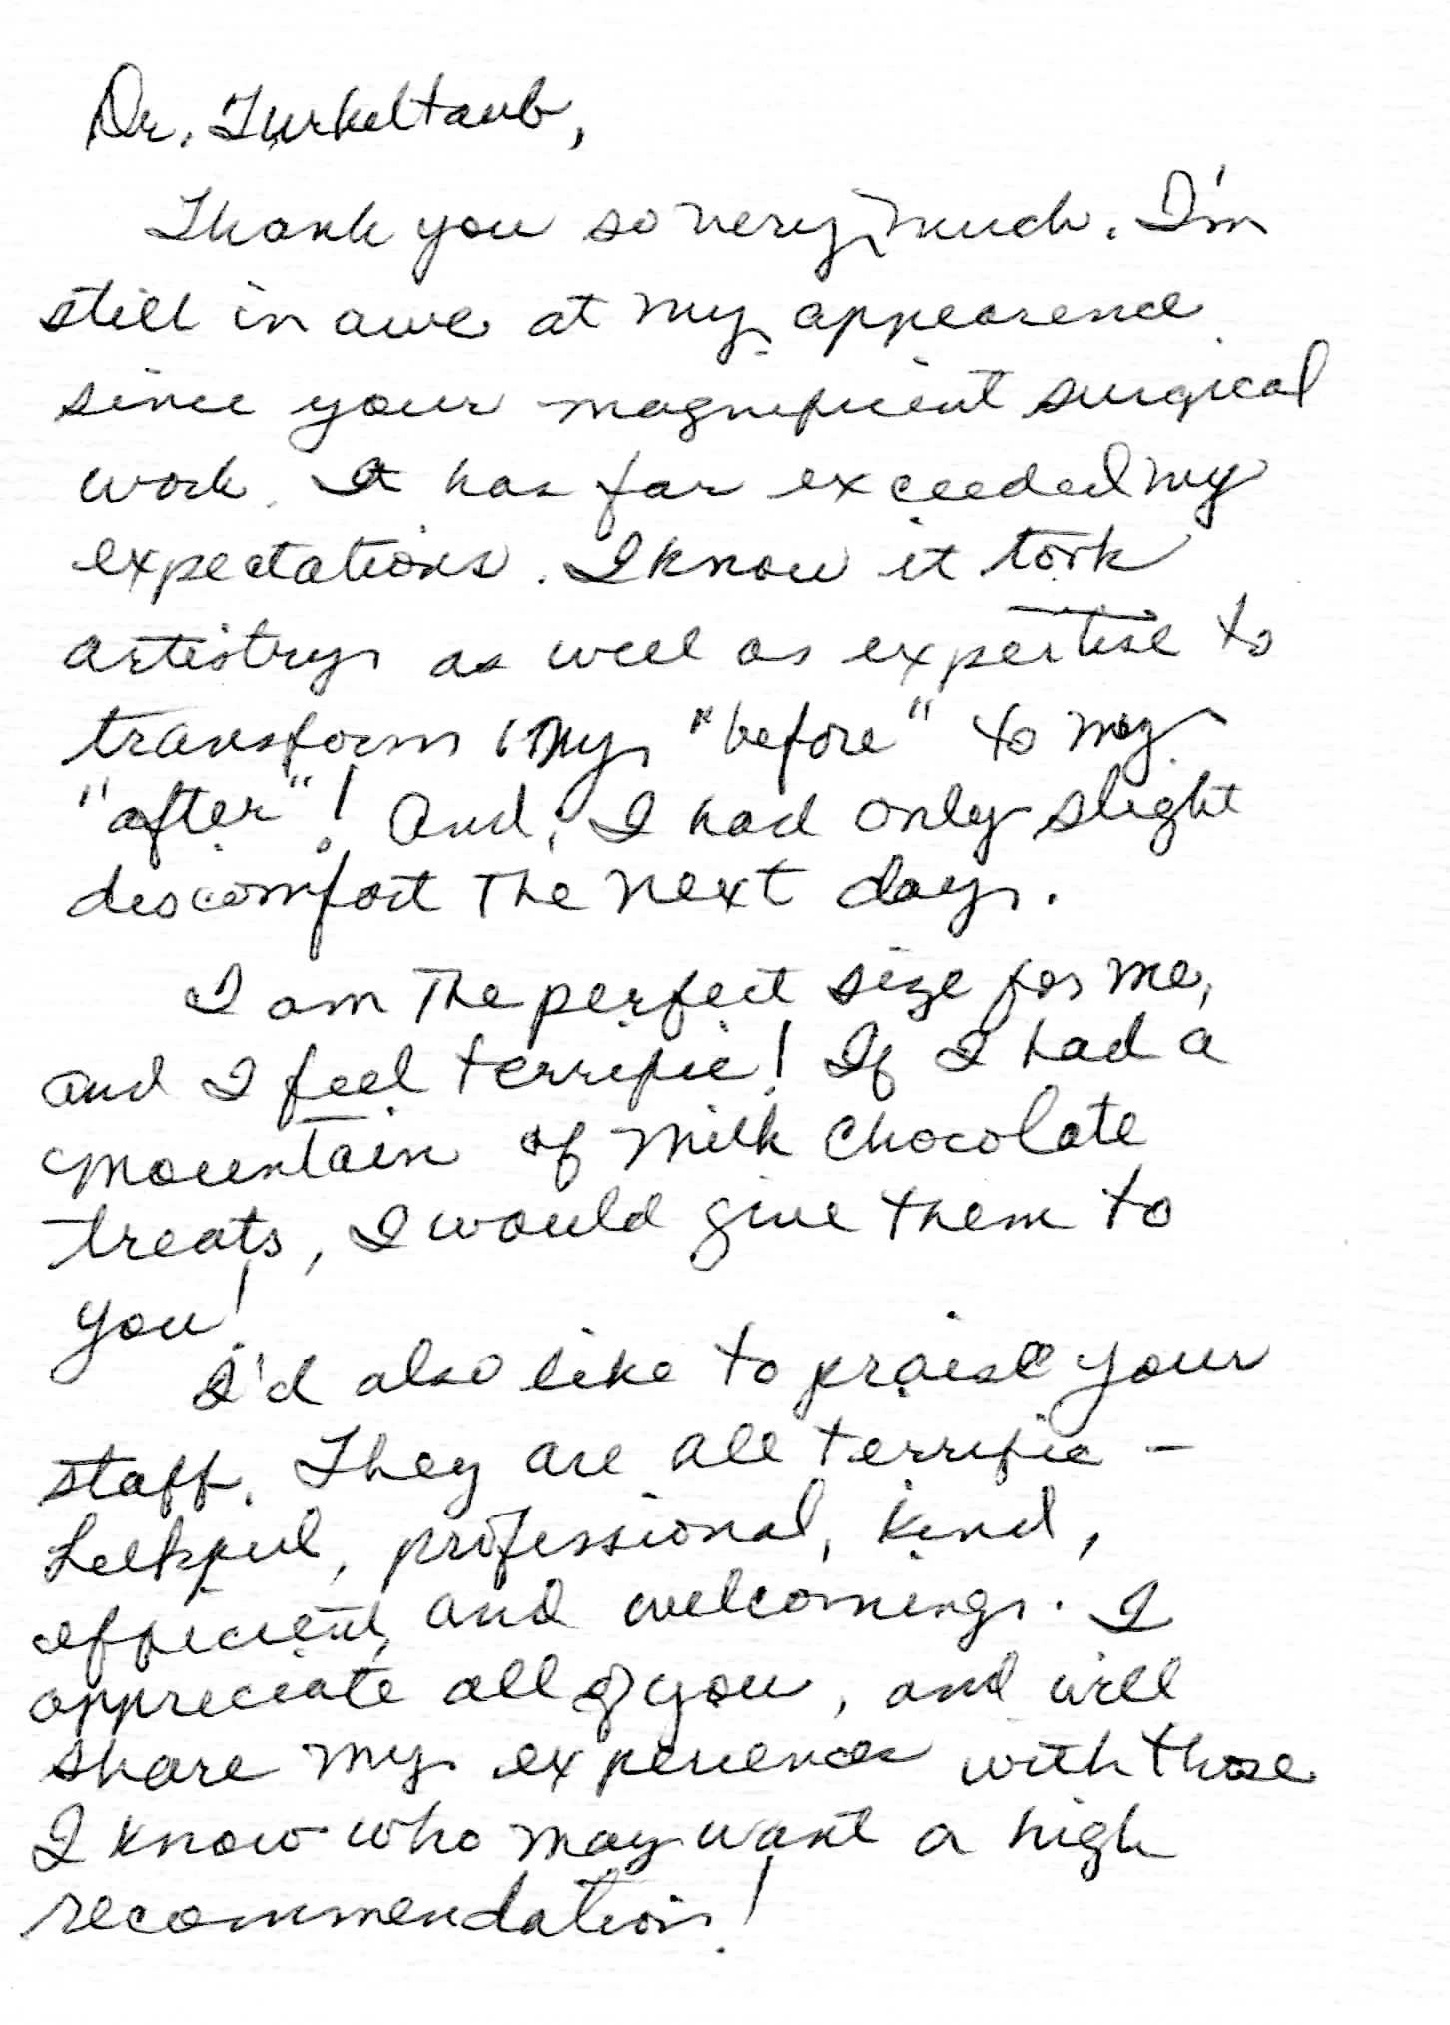 Dr. Turkeltaub,
Thank you so very much. I'm
still in awe at my appearence
since your magnificient surgical
work. It has far exceeded my
expectations. I know it took
artistry as well as expertise to
transform my "before" to my
"after"! And, I had only slight
discomfort the next day.
I am the perfect size for me,
and I feel terrific! If I had a
mountain of milk chocolate
treats, I would give them to
you!
I'd also like to praise your
staff. They are all terrific –
helpful, professional, kind,
efficient, and welcoming. I
appreciate all of you, and will
share my experience with those
I know who may want a high
recommendation!